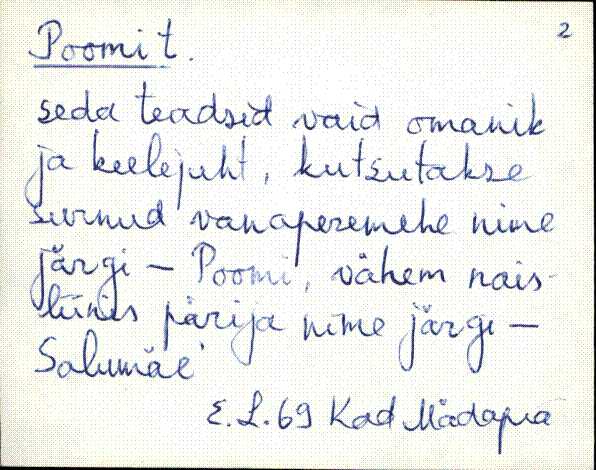 2
Poomi t.
seda teadsid vaid omanik
ja keelejuht, kutsutakse
surnud vanaperemehe nime
järgi – Poomi, vähem nais-
liinis pärija nime järgi –
Salumäe
E. L. 69 Kad Mädapea